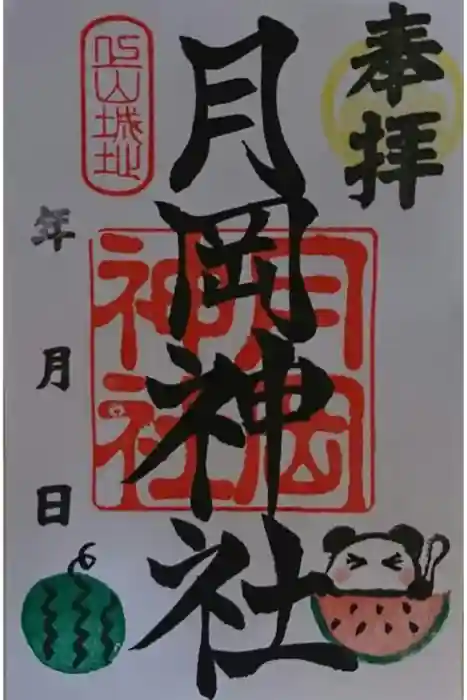 奉拝
月岡神社
上山城址
月岡
神社
年
月
日